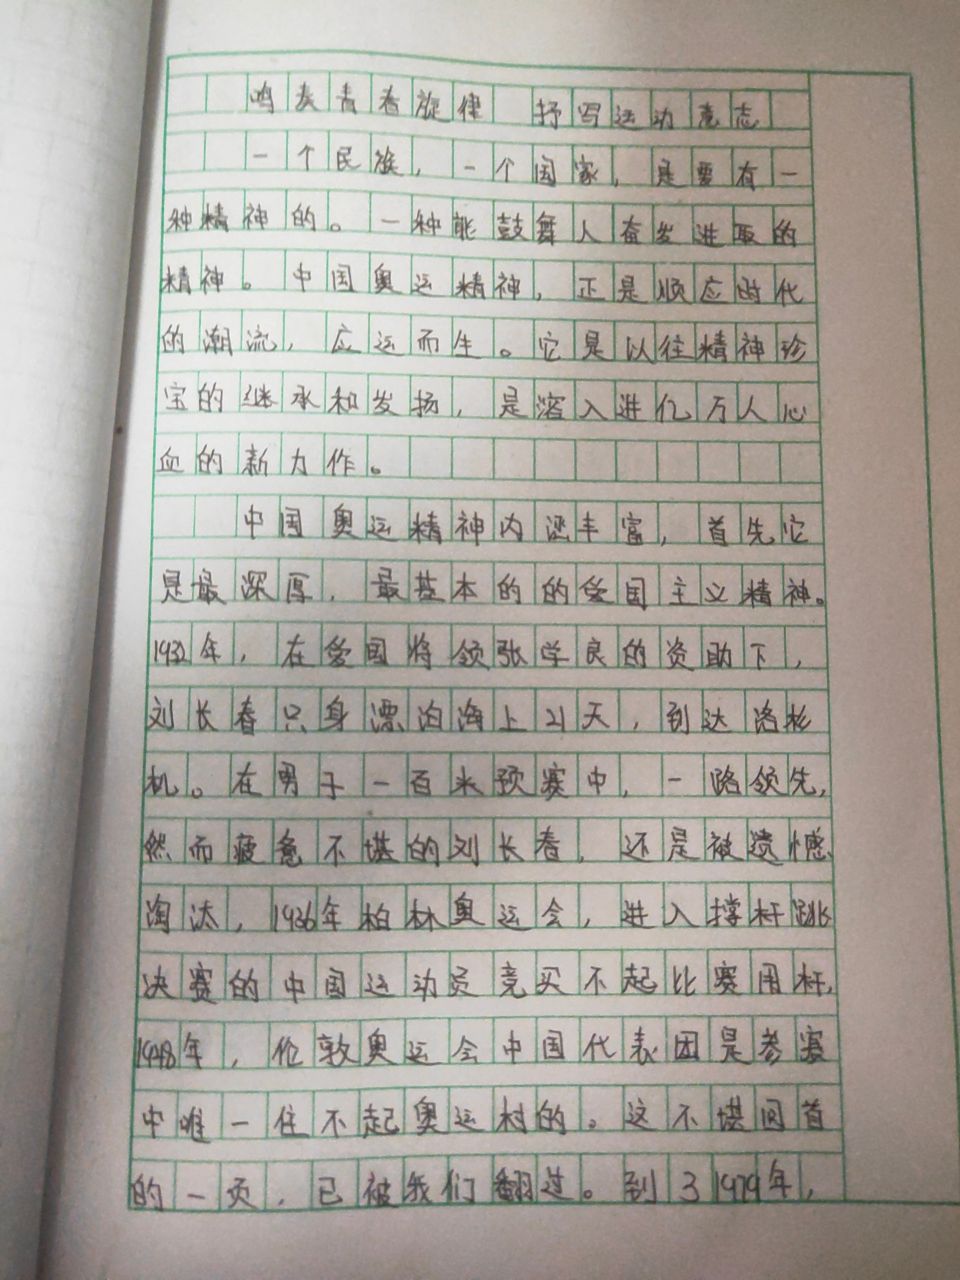 鸣奏青春旋律 抒写运动意志
一个民族，一个国家，是要有一
种精神的。一种能鼓舞人奋发进取的
精神。中国奥运精神，正是顺应时代
的潮流，应运而生。它是以往精神珍
宝的继承和发扬，是溶入进亿万人心
血的新力作。
中国奥运精神内涵丰富，首先它
是最深厚，最基本的的爱国主义精神。
1932年，在爱国将领张学良的资助下，
刘长春只身漂泊海上21天，到达洛杉
机。在男子一百米预赛中，一路领先，
然而疲惫不堪的刘长春，还是被遗憾
淘汰，1936年柏林奥运会，进入撑杆跳
决赛的中国运动员竞买不起比赛用杆，
1948年，伦敦奥运会中国代表团是参赛
中唯一住不起奥运村的。这不堪回首
的一页，已被我们翻过。到了1979年，